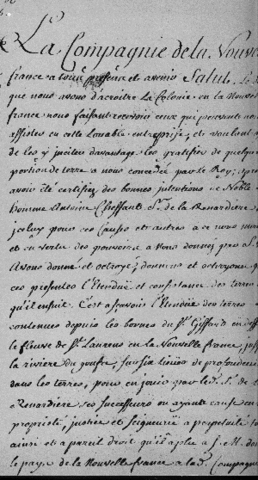 La Compagnie de la Nouve
france a tous presens et avenir Salut. Le
que nous avons d'acroitre La Colonie en la Nouve
france nous faisant recevoir ceux qui peuvent nous
assister en cette Louable entreprise, et voulant
de les y inciter davantage les gratifier de quelque
portion de terre a nous concedée par le Roy; apre
avoir été certifiez des bonnes intentions de Noble
homme Antoine Cheffault Sr. de la Renardiere
jceluy pour ces Causes et autres a ce nous mou
et en vertu des pouvoirs a Nous donnez par Sa
Avons donné et octroyé; donnons et octroyons
ces presentes l'Etenduë et consistance des terres
qu'il ensuit. C'est a sçavoir l'Etenduë des terres
contenues depuis les bornes du Sr. Giffard en
le fleuve de St. Laurens en la Nouvelle france, jusq
la riviere du gouffre, sur six lieües de profondeur
dans les terres, pour en jouir par le d. Sr. de
Renardiere ses successeurs ou ayants cause en
proprieté, justice et Seigneurie a perpetuité
ainsi et a pareil droit qu'il a plû a
le pays de la Nouvelle france a la d. Compagnie